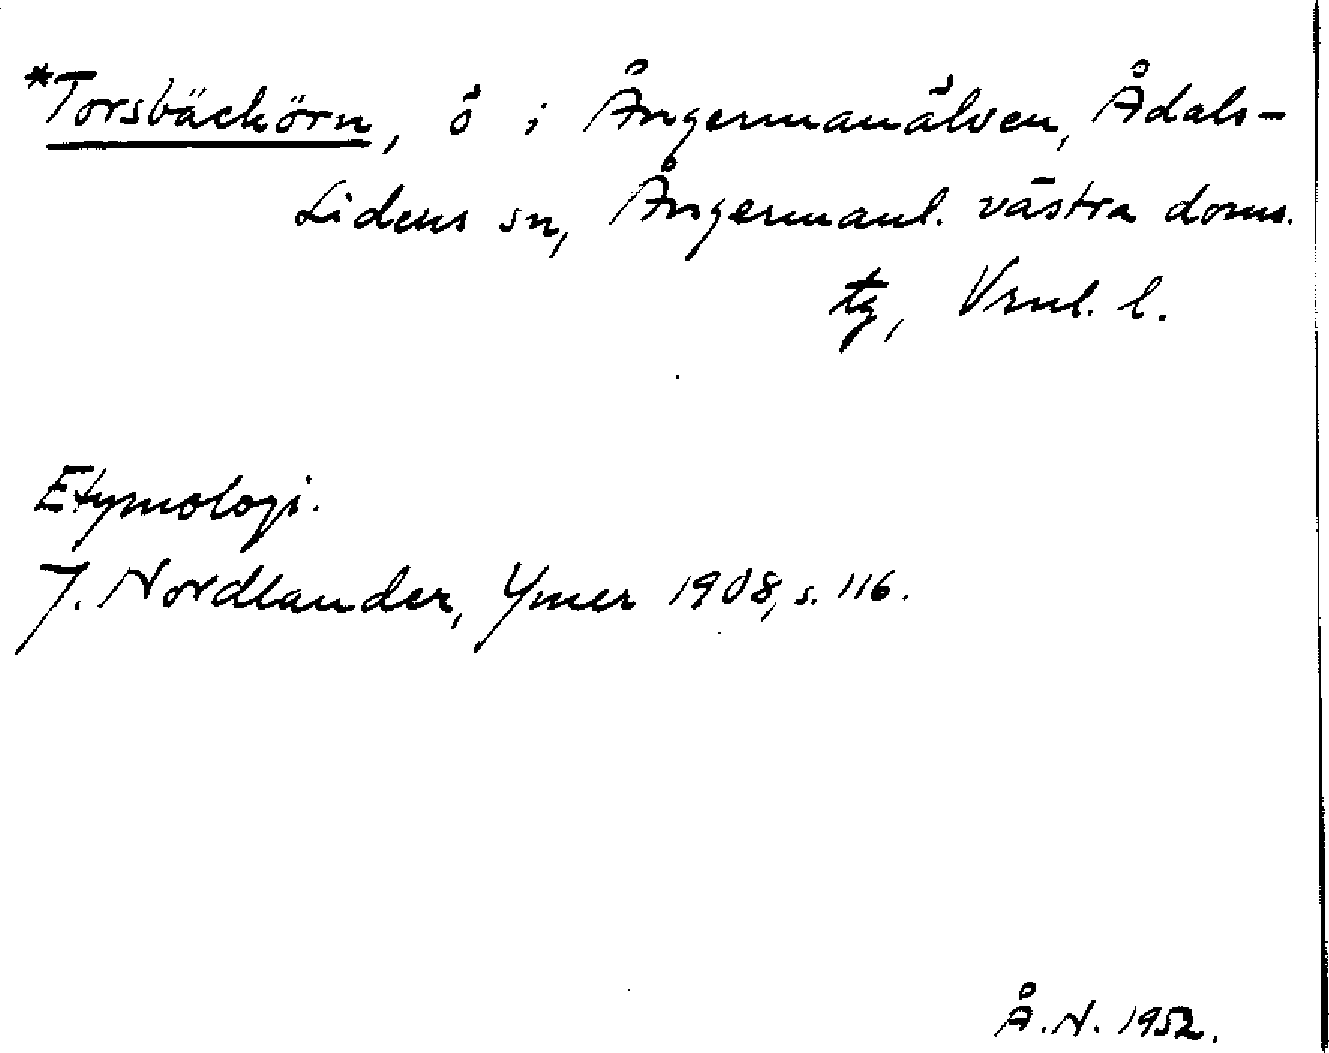 *Torsbäckörn, ö i Ångermanälven, Ådals-
Lidens sn, Ångermanl. västra doms.
tg, Vrnl. l.
Etymologi.
J. Nordlander, Ymer 1908, s. 116.
Å.N. 1952.